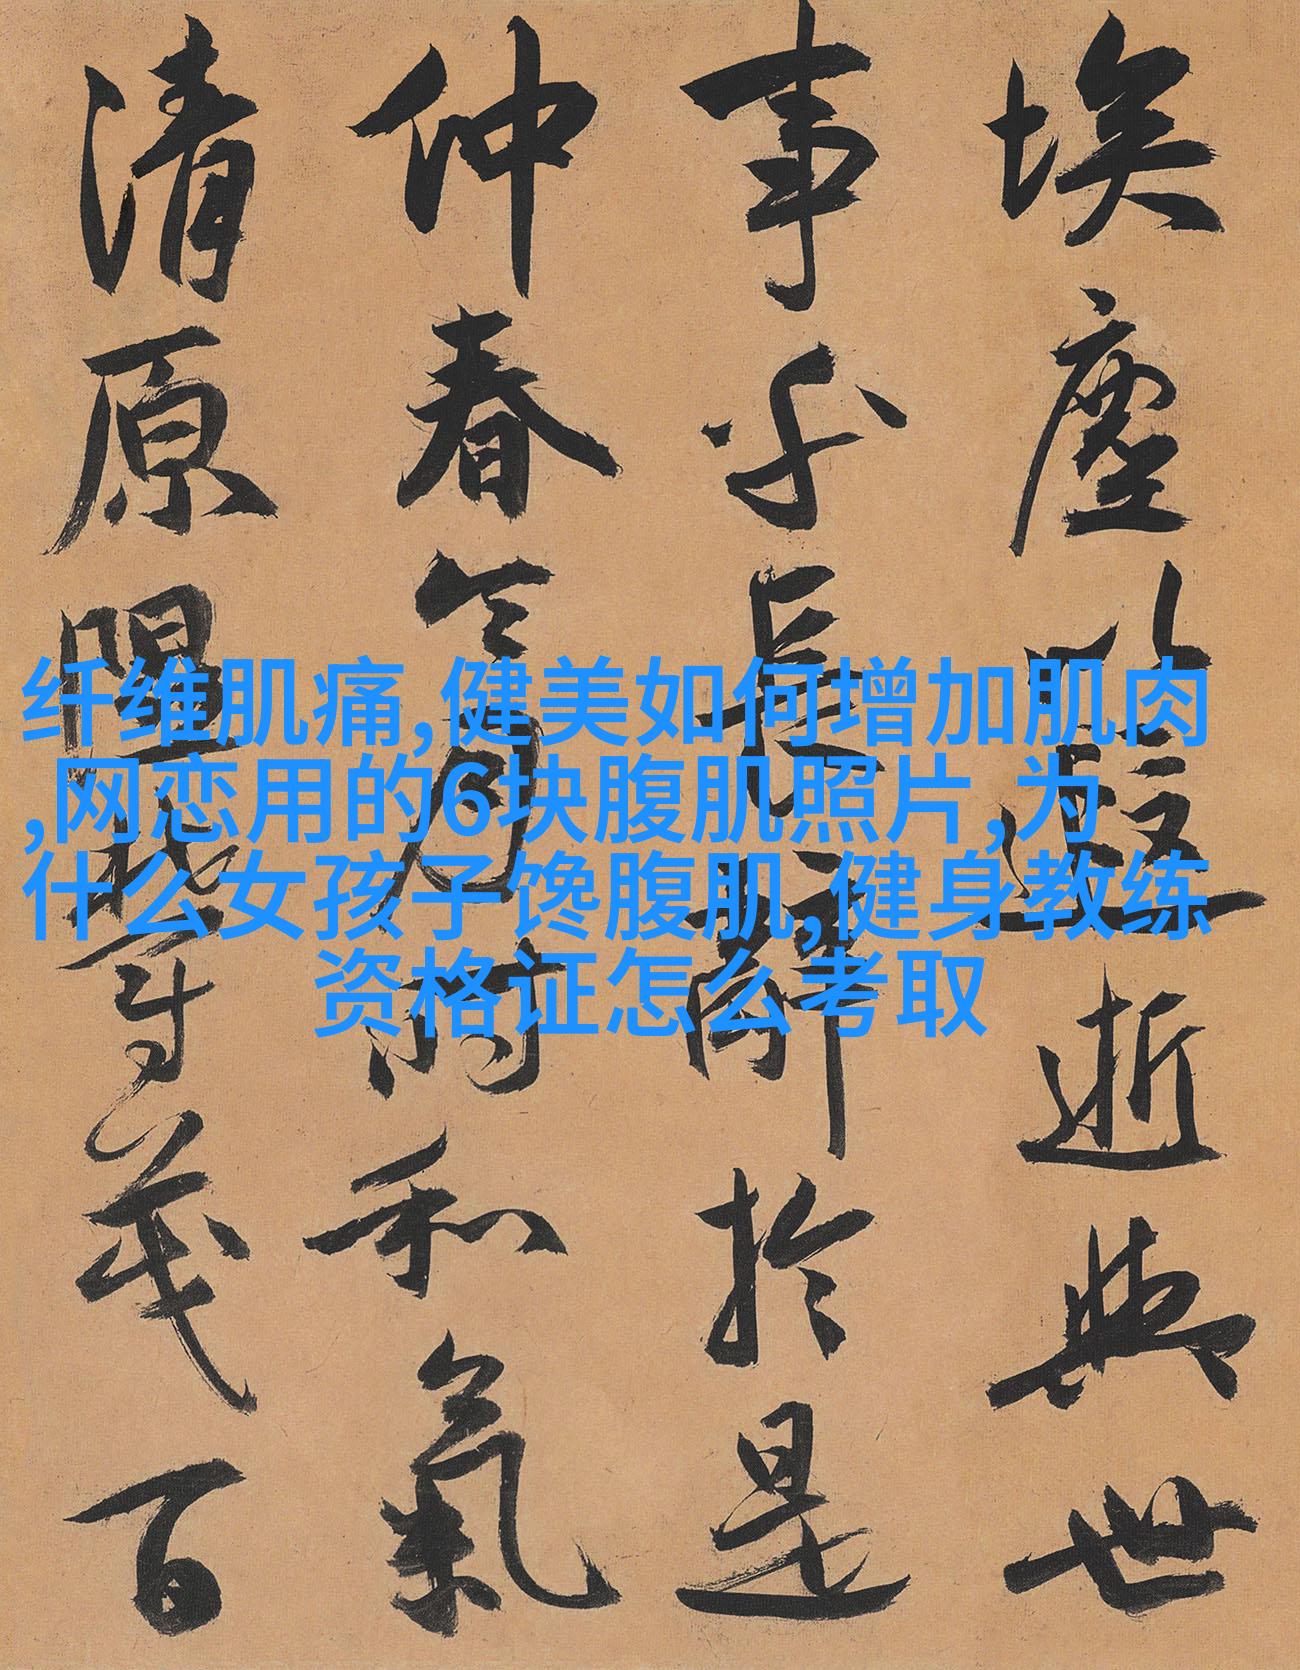 埃塵以遐逝與世
事乎長辭於是
仲春令月時和氣
清原隰鬱茂百
纤维肌痛,健美如何增加肌肉
,网恋用的6块腹肌照片,为
什么女孩子馋腹肌,健身教练
资格证怎么考取